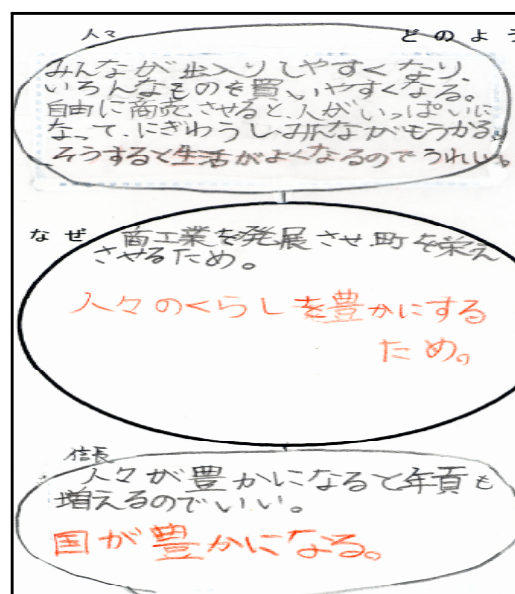 人々
どのよう
みんなが出入りしやすくなり、
いろんなものを買いやすくなる。
自由に商売させると、人がいっぱいに
なって、にぎわうし、みんながもうかる。
そうすると生活がよくなるのでうれしい。
なぜ
商工業を発展させ、町を栄え
させるため。
人々のくらしを豊かにする
ため。
信長
人々が豊かになると年貢も
増えるのでいい。
国が豊かになる。